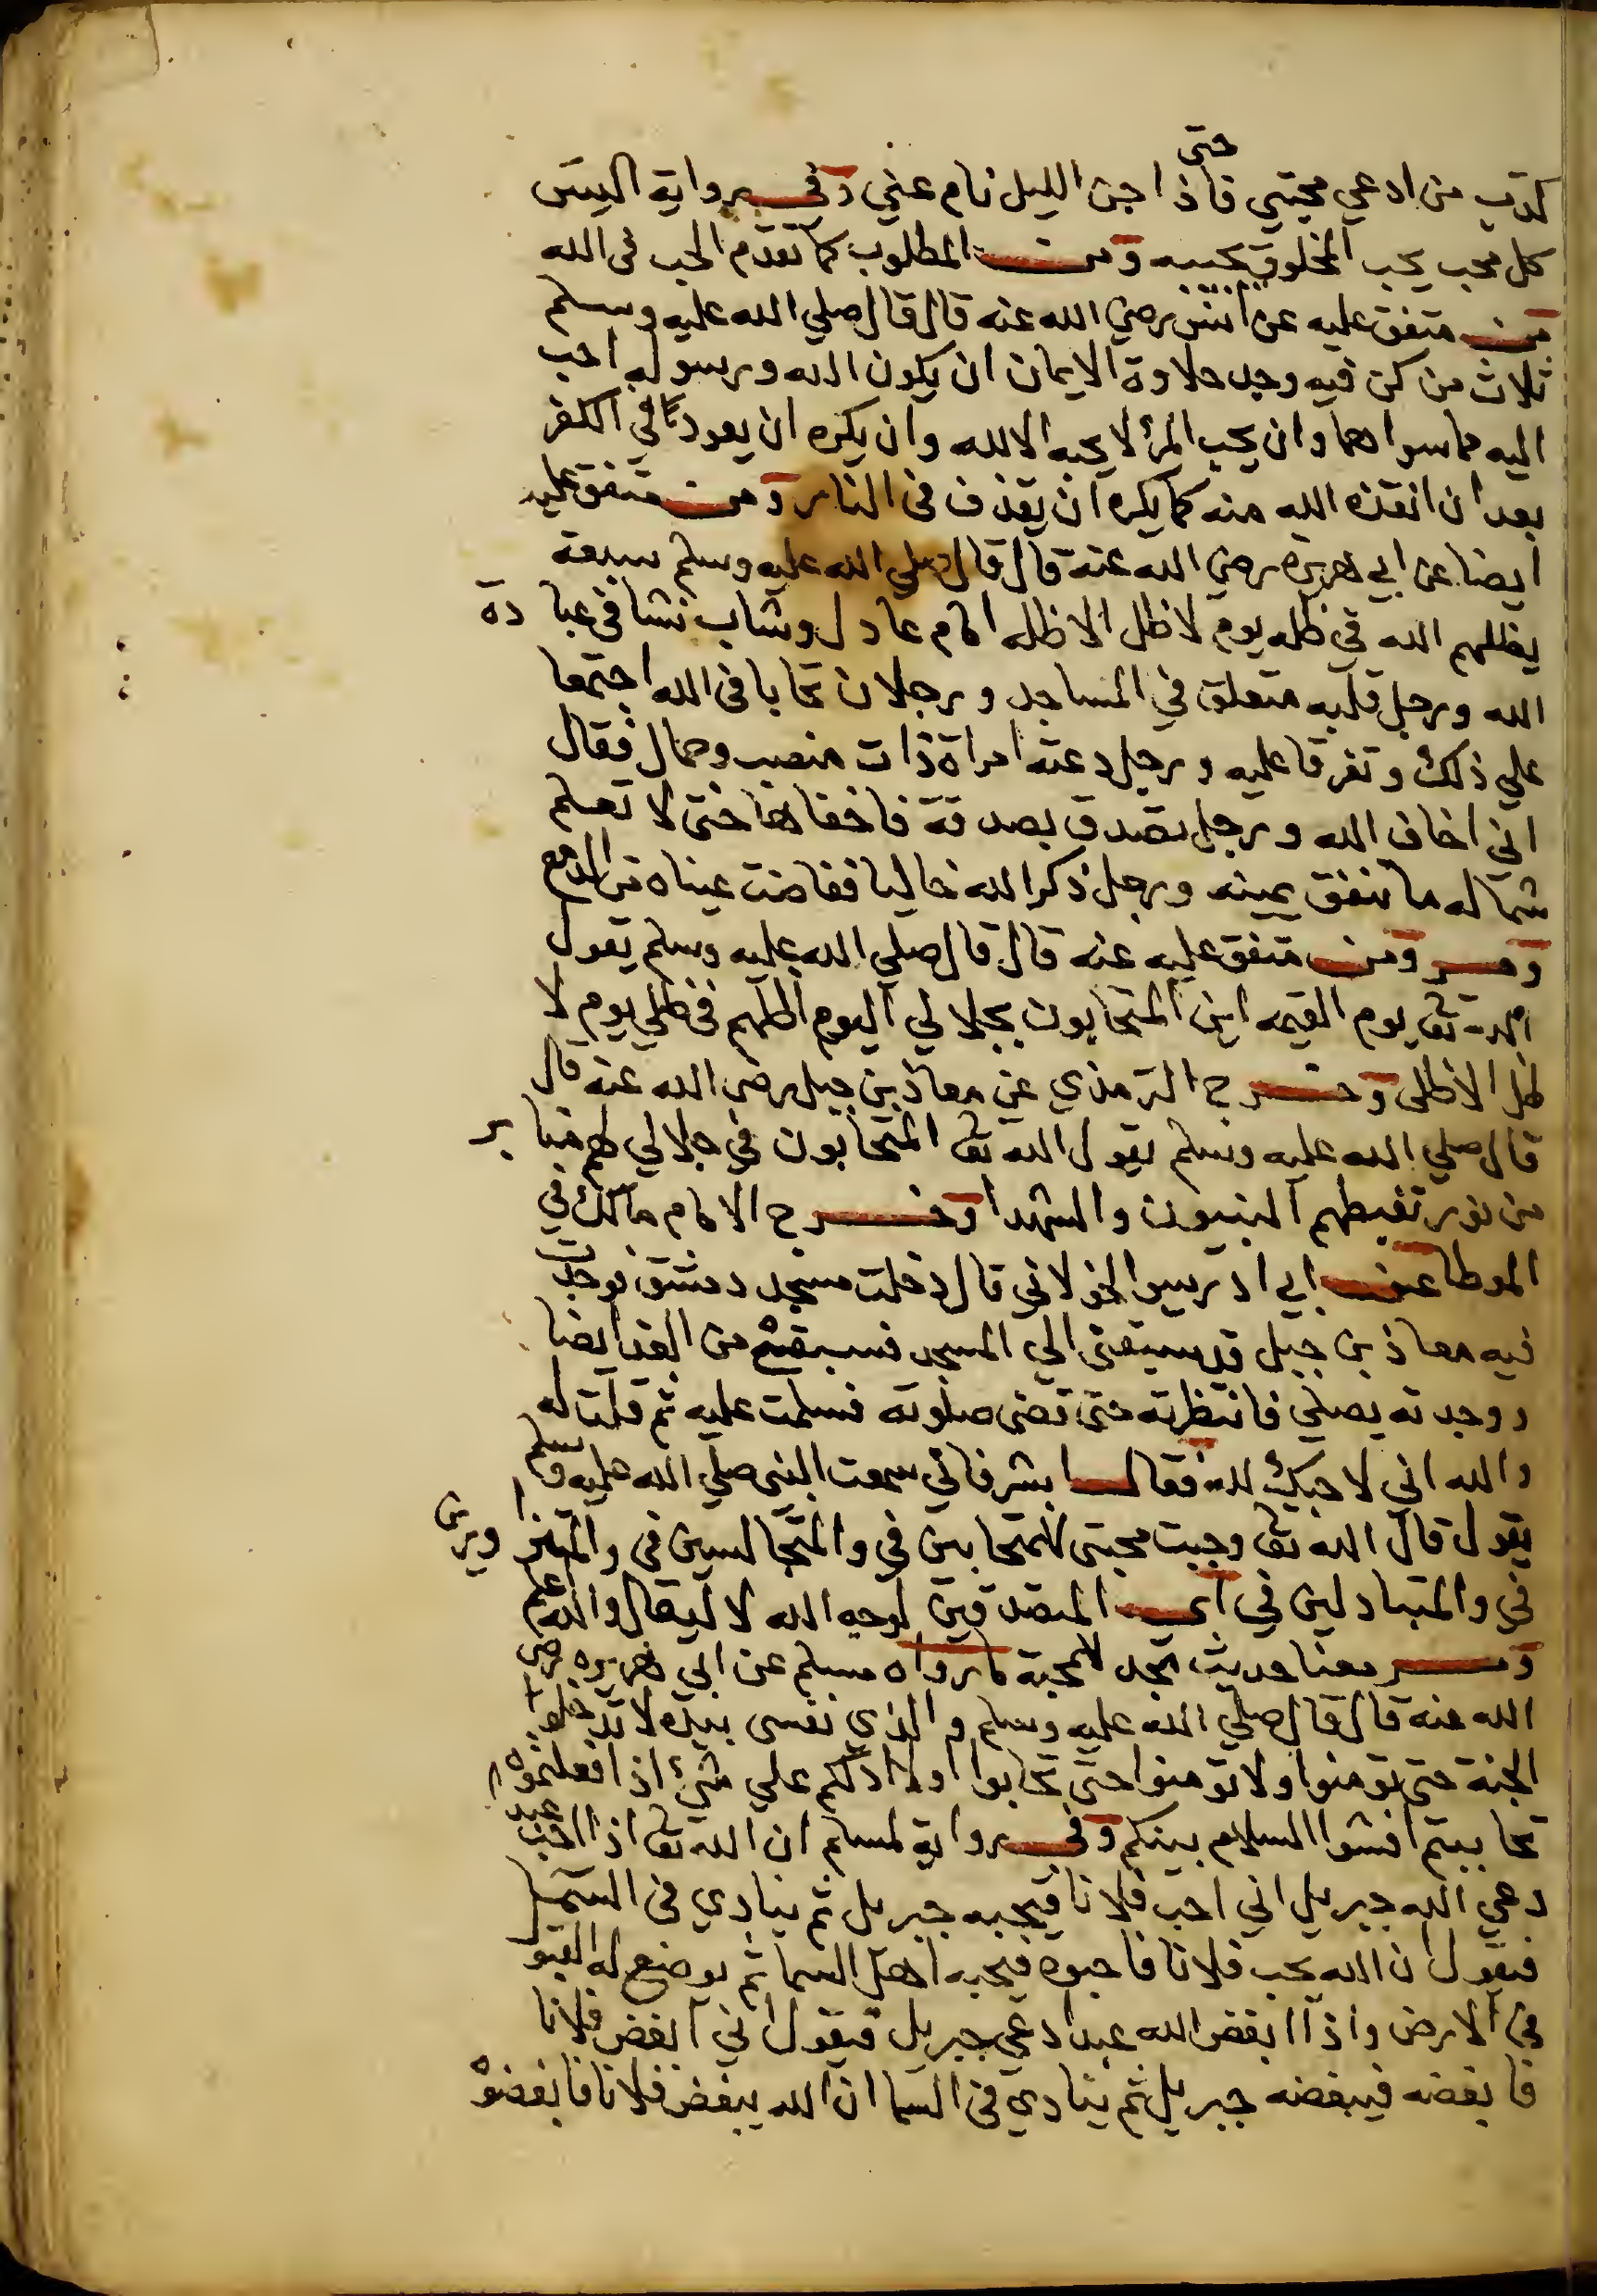 حتى
كذب من ادعي محبتي فاذا جن الليل نام عني وفي رواية اليس
كل محب يحب الخلوة بحبيبه ومن المطلوب كما تقدم الحب فى الله
متفق عليه عن انس رضي الله عنه قال قال صلي الله عليه وسلم
ثلاث من كن فيه وجد حلاوة الايمان ان يكون الله ورسوله احب
اليه مما سواهما وان يحب المرء لا يحبه الا لله وان يكره ان يعود في الكفر
بعد ان انقذه الله منه كما يكره ان يقذف فى النار ومن متفق عليه
ايضا عن ابي هريرة رضي الله عنه قال قال صلي الله عليه وسلم سبعة
يظلهم الله في ظله يوم لا ظل الا ظله امام عادل وشاب نشا فى عبادة
الله ورجل قلبه متعلق في المساجد ورجلان تحابا فى الله اجتمعا
علي ذلك وتفرقا عليه ورجل دعته امراة ذات منصب وجمال فقال
اني اخاف الله ورجل تصدق بصدقة فاخفاها حتى لا تعلم
شماله ما تنفق يمينه ورجل ذكر الله خاليا ففاضت عيناه من الدمع
ومن متفق عليه عنه قال قال صلي الله عليه وسلم يقول
الله تعا يوم القيمه اين المتحابون بجلالي اليوم اظلهم فى ظلي يوم لا
ظل الا ظلى وخرج الترمذي عن معاذ بن جبل رضي الله عنه قال
قال صلي الله عليه وسلم يقول الله تعا المتحابون في جلالي لهم منابر
من نور تغبطهم النبيون والشهدا وخرج الامام مالك في
الموطا عن ابي ادريس الخولاني قال دخلت مسجد دمشق فوجدت
فيه معاذ بن جبل قد سبقنى الي المسجد فسبقته من الغد ايضا
ووجدته يصلي فانتظرته حتى قضى صلوته فسلمت عليه ثم قلت له
والله اني لاحبك لله فقال ابشر فاني سمعت النبى صلي الله عليه وسلم
يقول قال الله تعا وجبت محبتى للمتحابين في والمتجالسين فى والمتزاورين
في والمتبادلين في اي المتصدقين لوجه الله لا ليقال والله اعلم
ومن معنا حديث نجد المحبة ما رواه مسلم عن ابي هريره رضي
الله عنه قال قال صلي الله عليه وسلم والذي نفسى بيده لا تدخلوا
الجنة حتى تومنوا ولا تومنوا حتى تحابوا اولا ادلكم علي شئ اذا فعلتموه
تحاببتم افشوا السلام بينكم وفي رواية لمسلم ان الله تعا اذا احب عبد
دعي الله جبريل اني احب فلانا فيحبه جبريل ثم ينادي فى السما
فيقول ان الله يحب فلانا فاحبوه فيحبه اهل السما ثم يوضع له القبو
فى الارض واذا ابغض الله عبدا دعي جبريل فيقول اني ابغض فلانا
فابغضه فيبغضه جبريل ثم ينادي فى السما ان الله يبغض فلانا فابغضوه